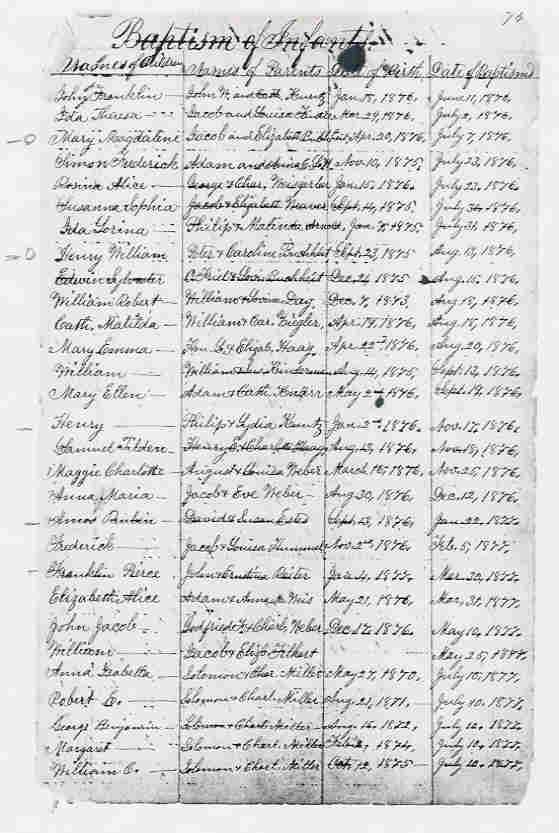 74
Baptism of Infants
Names of Children Names of Parents Date of Birth Date of Baptism
John Franklin John W. and Cath. Kuntz Jan. 18, 1876, June 11, 1876,
Ida Theresa Jacob and Louisa Mar. 29, 1876, July 2, 1876,
Mary Magdaline Jacob and Elizabeth Apr. 20, 1876, July 7, 1876,
Simon Frederick Adam and Nov. 10, 1875, July 23, 1876,
Rosina Alice George & Char. Weisgerber Jan. 15, 1876, July 23, 1876,
Susanna Sophia Jacob & Elizabeth Weaver Sept. 4, 1875, July 31, 1876,
Ida Lorina Philip & Malinda 1875, July 31, 1876,
Henry William Peter & Caroline Sept. 23, 1875 Aug. 13, 1876,
Edwin Sylvester Dec. 24, 1875 Aug. 15, 1876,
William Robert William & Day, Dec. 7, 1873 Aug. 18, 1876,
Cath. Matilda William & Car. Ziegler, Apr. 19, 1876, Aug. 18, 1876,
Mary Emma & Elizab. Haag, Apr. 22nd, 1876, Aug. 20, 1876,
William William & Aug. 14, 1875, Sept. 13, 1876,
Mary Ellen Adam & Cath. Knarr May 2nd, 1876, Sept. 19, 1876,
Henry Philip & Lydia Kuntz Jan. 2nd, 1876, Nov. 17, 1876,
Samuel Tilden Henry & Charlotte Haag Aug. 13, 1876, Nov. 18, 1876,
Maggie Charlotte August & Louisa Weber March 16, 1876, Nov. 25, 1876,
Anna Maria Jacob & Eve Weber Aug. 30, 1876, Dec. 12, 1876,
Amos Rubin David & Susan Sept. 13, 1876, Jan. 22, 1877,
Frederick Jacob & Louisa Nov. 2nd, 1876, Feb. 5, 1877,
Franklin Pierce John & Ernstina Reiter Jan. 4, 1877, Mar. 30, 1877,
Elizabeth Alice Adam & Anna Wis May 21, 1876, Mar. 31, 1877,
John Jacob Godfried F. & Charl. Weber Dec. 17, 1876, May 10, 1877,
William Jacob & Eliz. May 25, 1877,
Anna Isabella Solomon & Char. Miller May 27, 1870, July 10, 1877,
Robert Solomon & Charl. Miller Aug. 21, 1871, July 10, 1877,
George Benjamin Solomon & Charl. Miller Aug. 16, 1872, July 10, 1877,
Margaret Solomon & Charl. Miller Feb. 2, 1874, July 10, 1877,
William O. Solomon & Charl. Miller Oct. 12, 1875 July 10, 1877,